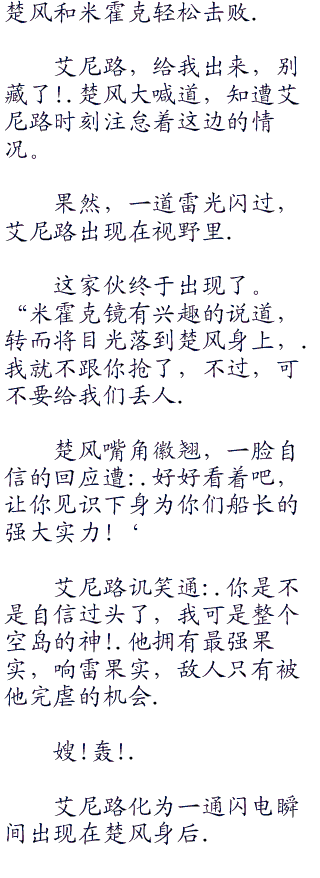 楚风和米霍克轻松击败.
艾尼路，给我出来，别
藏了!.楚风大喊道，知遭艾
尼路时刻注怠着这边的情
况。
果然，一道雷光闪过，
艾尼路出现在视野里.
这家伙终于出现了。
“米霍克镜有兴趣的说道，
转而将目光落到楚风身上，.
我就不跟你抢了，不过，可
不要给我们丢人.
楚风嘴角徽翘，一脸自
信的回应遭:.好好看着吧，
让你见识下身为你们船长的
强大实力!‘
艾尼路讥笑通:.你是不
是自信过头了，我可是整个
空岛的神!.他拥有最强果
实，响雷果实，敌人只有被
他完虐的机会.
嫂!轰!.
艾尼路化为一通闪电瞬
间出现在楚风身后.